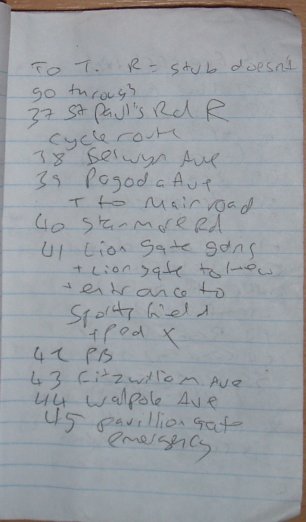 TO T. R = stub doesn't
go through
37 St Paul's Rd R
cycle route
38 Selwyn Ave
39 Pagoda Ave
T to Main road
40 Stanmore Rd
41 Lion Gate gdns
+ Lion gate to Kew
+ entrance to
Sports field
+ Ped X
42 PB
43 Fitzwilliam Ave
44 Walpole Ave
45 pavillion gate
emergency